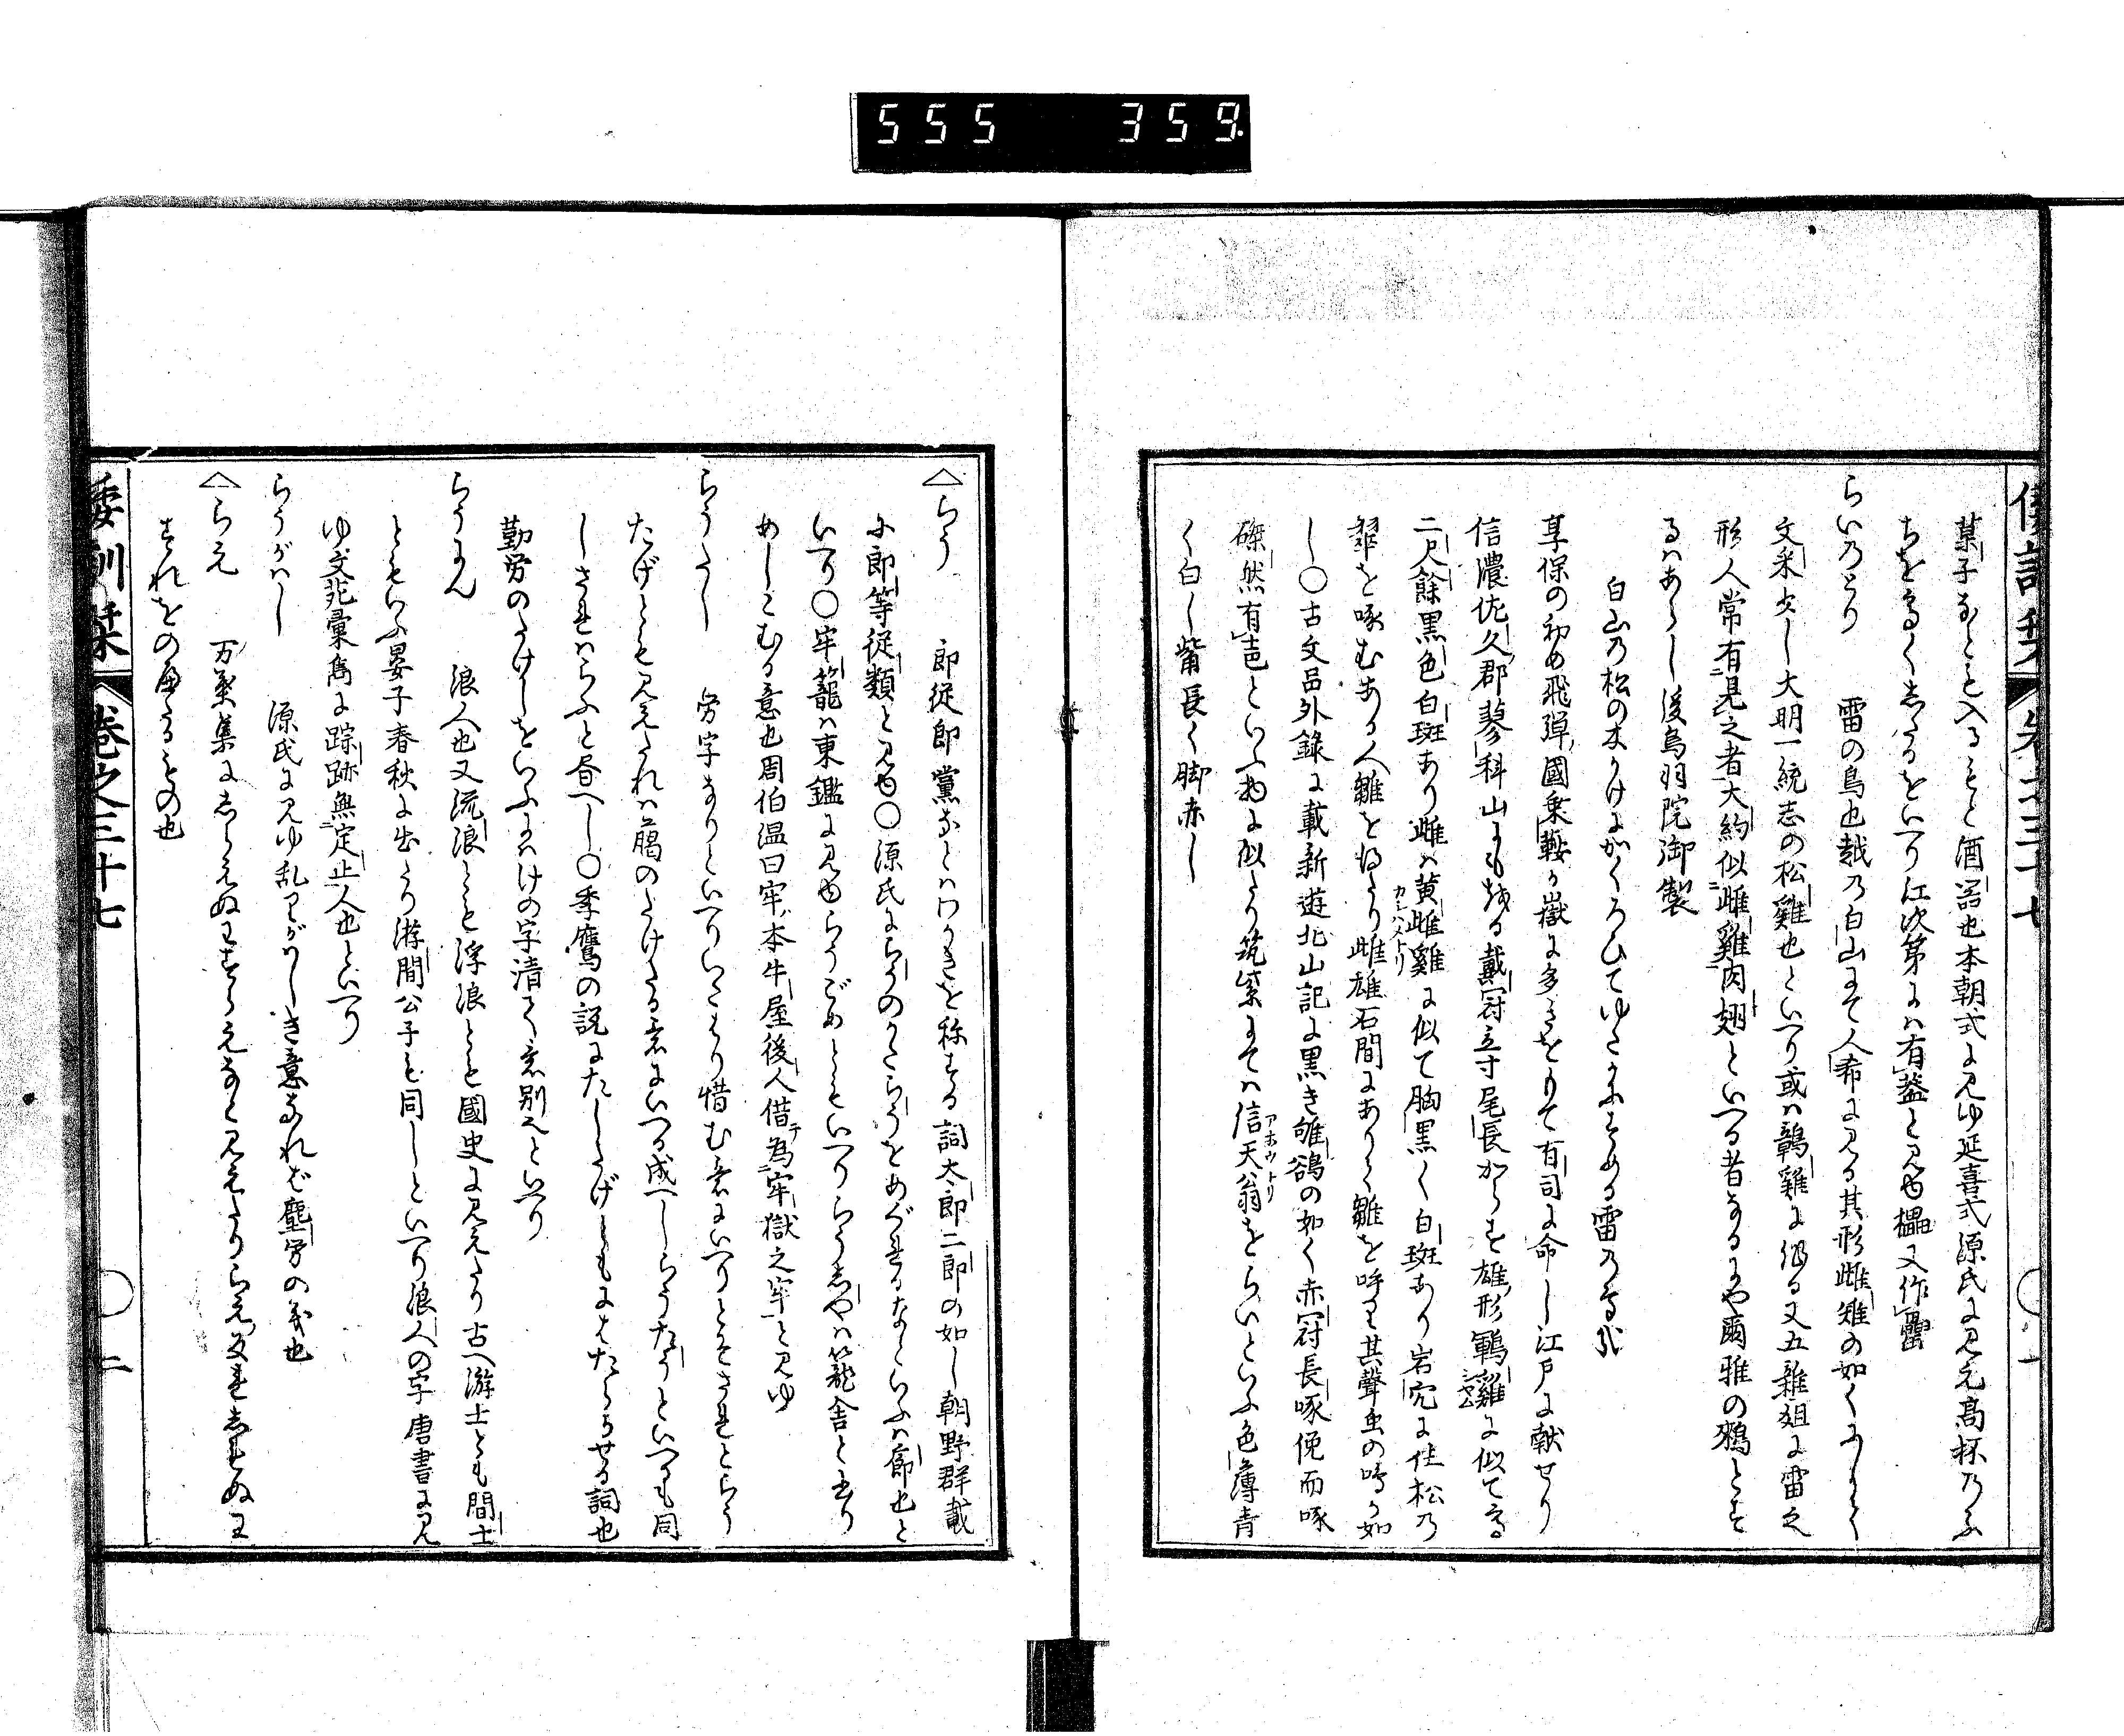 555 359.
菓子なとも入るもと酒器也本朝式に見ゆ延喜式源氏に見え高杯乃ふ
ちを高くしたるをいへり江次第には有蓋と見ゆ櫑又作罍
らいのとり 雷の鳥也越乃白山にて人希に見る其形雌雉の如くにして
文采少し大明一統志の松雞也といへり或は鶡雞に係る又五雜俎に雷之
形人常有見之者大約似雌雞肉翅といへる者なるにや爾雅の鵕とす
るはあらし後鳥羽院御製
白山乃松の木かけにかくろひてゆたかにすめる雷乃鳥哉
享保の初め飛騨國乗鞍か嶽に多きをもて有司に命し江戸に献せり
信濃佐久郡蓼科山にも栖る戴冠立寸尾長からす雄形鶤雞に似て高
二尺餘黒色白斑あり雌は黄雌雞に似て胸黒く白斑あり岩穴に住松乃
翠を啄むある人雛を得たり雌雄石間にありて雛を呼に其聲虫の鳴か如
し〇古文品外錄に載新遊北山記に黒き雉鵒の如く赤冠長啄俛而啄
磔然有声といふ物に似たり筑紫にては信天翁をらいといふ色薄青
く白し觜長く脚赤し
倭訓栞 巻之三十七 〇一
らう 郎従郎黨なとはわかきを称する詞太郎二郎の如し朝野群載
に郎等従類と見ゆ〇源氏にらうのたらうをめぐれるなといふは廊也と
いへり〇牢籠は東鑑に見ゆらうごめともいへりらうしやは籠舎と書り
めしこむる意也周伯温曰牢本牛屋後人借為牢獄之牢と見ゆ
らうたし 労字なりといへりいたはり惜む意にいへりとそされとらう
たげとも見えたれは﨟のたけたる意にいへる成へしらうたうといへるも同
しされはらふと昼へし〇季鷹の説にたしたげともにはたらかせる詞也
勤労のたけしをいふにはけの字清て意別也といへり
らうにん 浪人也又流浪とも浮浪とも國史に見えたり古へ游士とも間士
ともいふ晏子春秋に出たり游間公子も同しといへり浪人の字唐書に見
ゆ文苑彙雋に踪跡無定止人也といへり
らうがはし 源氏に見ゆ乱りがはしき意なれば塵労の義也
らえ 万葉集にしらえぬにすらえなと見えたりらえ反れしられぬに
すれをのへたるもの也
倭訓栞 巻之三十七 〇二